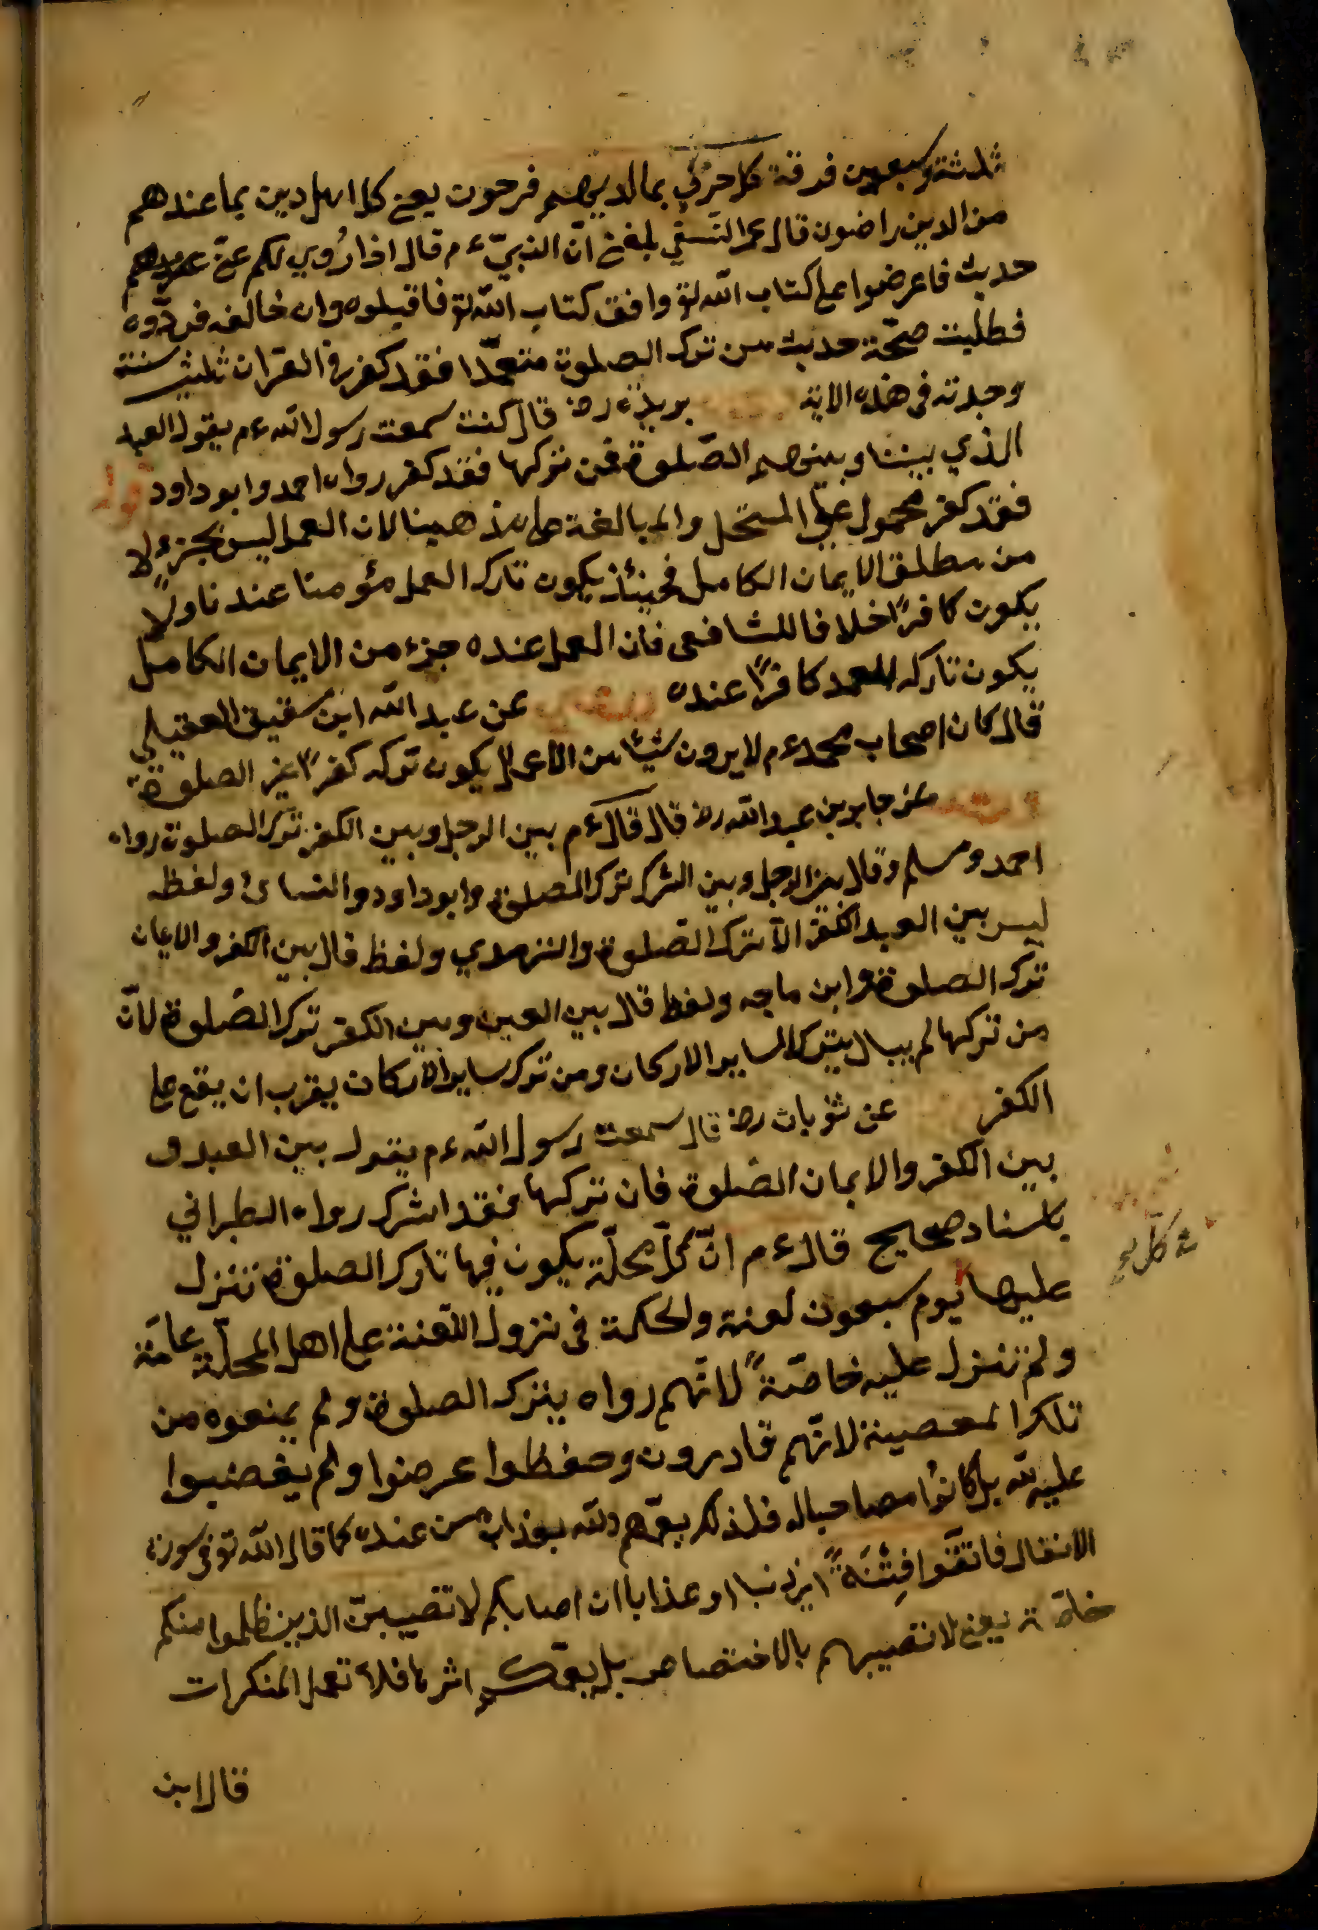 ثلثة وسبعين فرقة كل حزب بما لديهم فرحون يعنى كل اهل دين بما عندهم
من الدين راضون قال عمر النسفي بلغنى انّ النبيّ ءم قال اذا رُوي لكم عنّي
حديث فاعرضوا على كتاب الله لو وافق كتاب الله تع فاقبلوه وان خالفه فردّوه
فطلبت صحّة حديث من ترك الصلوة متعمّدا فقد كفر في القرآن ثلثين سنة
وجدته فى هذه الاية بريدة رضـ قال كنت سمعت رسول الله ءم يقول العهد
الذي بيننا وبينهم الصّلوة فمن تركها فقد كفر رواه احمد وابو داود قوله
فقد كفر محمول على المستحل والمبالغة على مذهبنا لان العمل ليس بجزء
من مطلق الايمان الكامل فحينئذ يكون تارك العمل مؤمنا عندنا ولا
يكون كافرًا خلافا للشافعى فان العمل عنده جزء من الايمان الكامل
يكون تاركه للعمد كافرًا عنده عن عبد الله ابن شقيق العقيلي
قال كان اصحاب محمد ءم لا يرون شيئا من الاعمال يكون تركه كفرًا غير الصلوة
عن جابر بن عبد الله رضـ قال قال ءم بين الرجل وبين الكفر ترك الصلوة رواه
احمد ومسلم وقال بين الرجل وبين الشرك ترك الصلوة وابو داود والنسائ ولفظه
ليس بين العبد والكفر الّا ترك الصّلوة والترمذي ولفظ قال بين الكفر والايمان
ترك الصلوة وابن ماجه ولفظ قال بين العبد وبين الكفر ترك الصّلوة لانّ
من تركها لم يبال بترك الساير الاركان ومن ترك ساير الاركان يقرب ان يقع على
الكفر عن ثوبان رضـ قال سمعت رسول الله ءم يقول بين العبد و
بين الكفر والايمان الصّلوة فان تركها فقد اشرك رواه الطبراني
باسناد صحيح قال ءم انّ كلّ محلّة يكون فيها تارك الصلوة تنزل
عليها يوم سبعون لعنة والحكمة فى نزول اللّعنة على اهل المحلّة عامّة
ولم تنزل عليه خاصّةً لانّهم رواه يترك الصلوة ولم يمنعوه من
تلك المعصية لانّهم قادرون وحفظوا عرضوا ولم يغضبوا
عليه لله بل كانوا مصاحبا له فلذلك يعمّهم الله بعذاب من عنده كما قال الله تع فى سورة
الانفال فاتّقوا فِتْنَةً اي ذنبا او عذابا ان اصابكم لا تصيبنّ الذين ظلموا منكم
خاصّة يعنى لا تصيبهم بالاختصاص بل يعمّكم اثرها فلا تعمل المنكرات
قال ابن